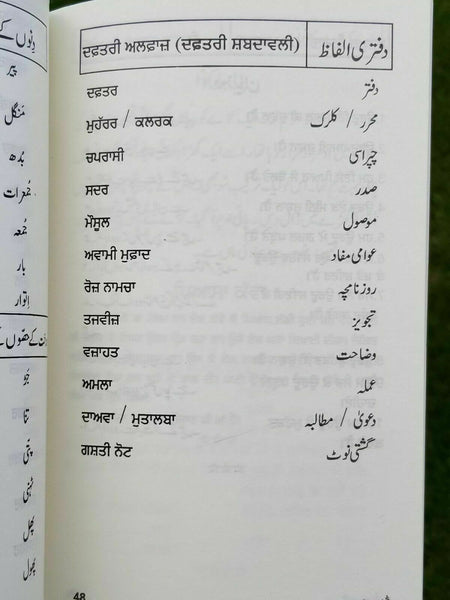 ਦਫ਼ਤਰੀ ਅਲਫਾਜ਼ (ਦਫ਼ਤਰੀ ਸ਼ਬਦਾਵਲੀ) دفتری الفاظ
ਦਫ਼ਤਰ دفتر
ਮੁਹੱਰਰ / ਕਲਰਕ محرر / کلرک
ਚਪਰਾਸੀ چپراسی
ਸਦਰ صدر
ਮੌਸੂਲ موصول
ਅਵਾਮੀ ਮੁਫ਼ਾਦ عوامی مفاد
ਰੋਜ਼ ਨਾਮਚਾ روزنامچہ
ਤਜਵੀਜ਼ تجویز
ਵਜ਼ਾਹਤ وضاحت
ਅਮਲਾ عملہ
ਦਾਅਵਾ / ਮੁਤਾਲਬਾ دعویٰ / مطالبہ
ਗਸ਼ਤੀ ਨੋਟ گشتی نوٹ
48
دِنوں کے
پیر
مَنگل
بُدھ
جُمعرات
جُمعہ
اِتوار